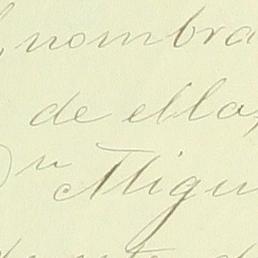 nombra
de ella,
n Migu